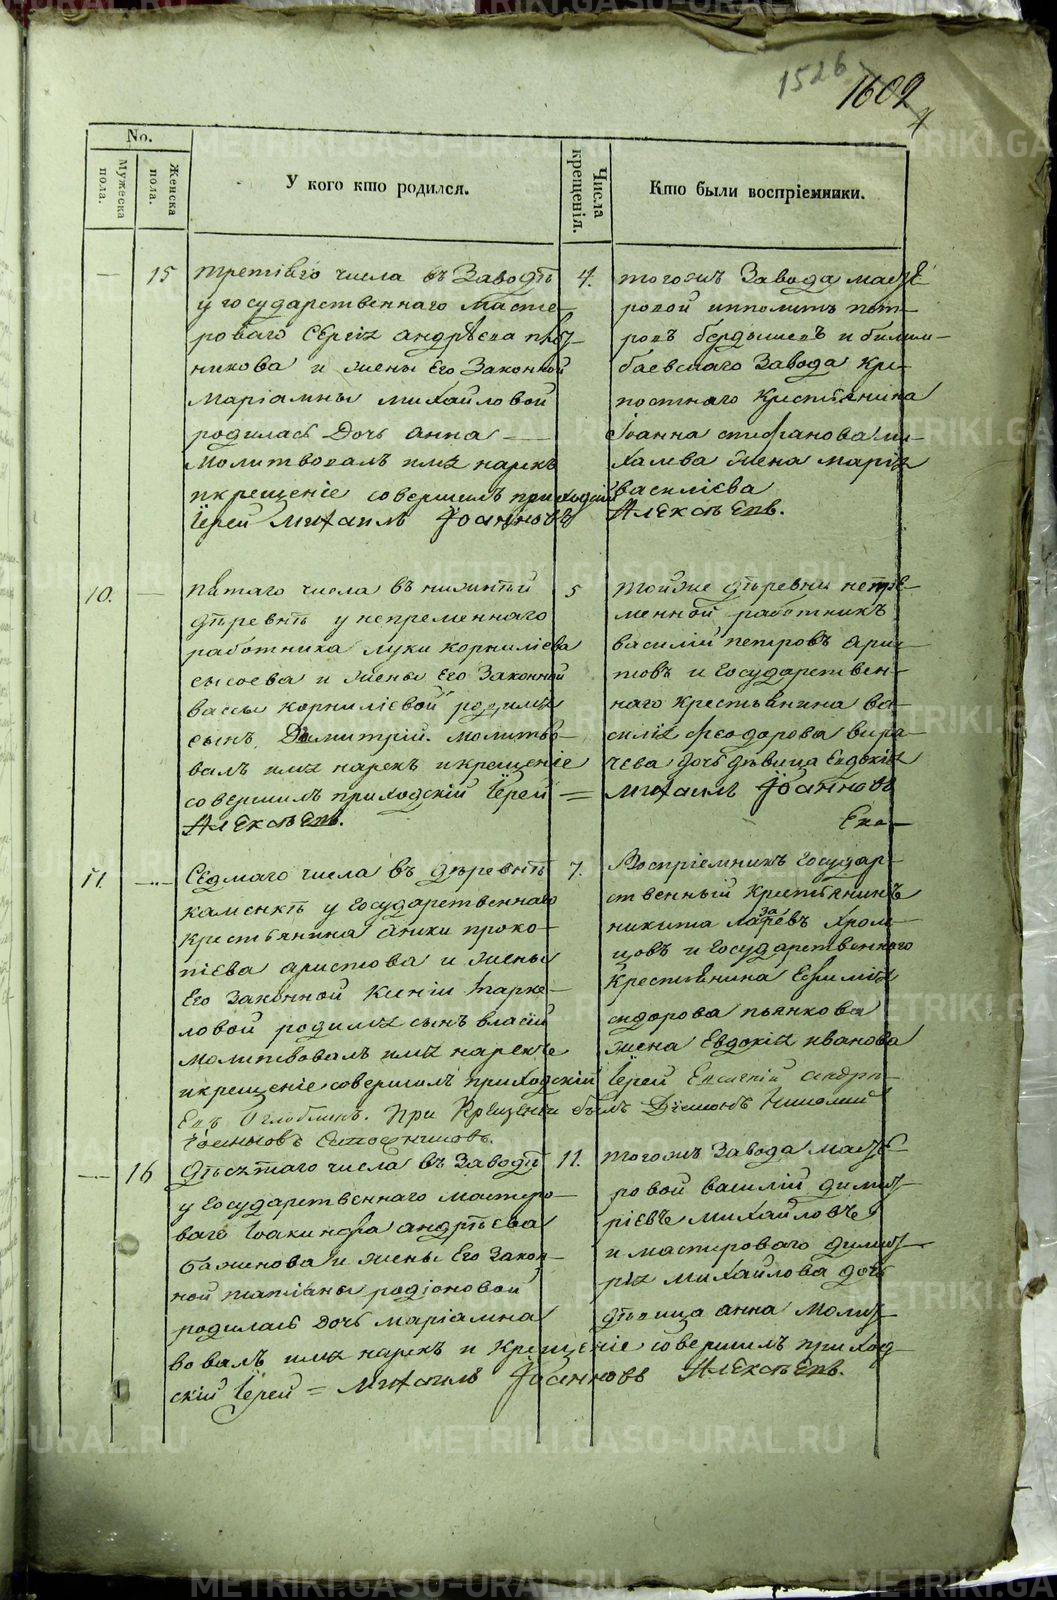 1526
1602
4
No.
Мужеска пола.
Женска пола.
У кого кто родился.
Числа крещенія.
Кто были воспріемники.
— 15
третьяго числа въ Заводѣ
у государственнаго масте-
роваго Сергія андрѣева
никова и жены Его Законной
Маріамны михайловой
родилась Дочь анна —
молитвовалъ имя нарекъ
и крещеніе совершилъ приходскій
Іерей Михаилъ Іоанновъ
4.
тогожъ Завода масте-
ровой ипполитъ пет-
ровъ бердышевъ и билим-
баевскаго Завода кре-
постнаго крестьянина
Іоанна стефанова ми-
халева жена марія
василіева
Алексѣевъ.
10. —
пятаго числа въ нижнѣй
дѣревнѣ у непременнаго
работника луки корниліева
сысоева и жены Его Законной
вассы корниліевой родился
сынъ Димитрій. молитво-
валъ имя нарекъ и крещеніе
совершилъ приходскій Іерей =
Алексѣевъ.
5
тойже дѣревни непре-
менной работникъ
василій петровъ арис-
товъ и государствен-
наго крестьянина ва-
силія феодорова вира-
чева дочь дѣвица Евдокія
Михаилъ Іоанновъ
11. —
Седмаго числа въ дѣревнѣ
каменкѣ у государственнаго
крестьянина аники проко-
піева аристова и жены
Его Законной Ксеніи парке-
ловой родился сынъ власій
молитвовалъ имя нарекъ
и крещеніе совершилъ приходскій Іерей Евгеній андре-
евъ Оглоблинъ. При Крещеніи былъ Діаконъ Николай
Іоанновъ
7.
Воспріемникъ государ-
ственный крестьянинъ
никита лазаревъ хром-
цовъ и государственнаго
крестьянина Ефимія
сидорова пьянкова
жена Евдокія иванова
— 16
дѣсятаго числа въ Заводѣ
у государственнаго мастеро-
ваго Іоакинфа андрѣева
баженова и жены Его Закон-
ной татіаны родіоновой
родилась дочь маріамна
вовалъ имя нарекъ и Крещеніе совершилъ приход-
скій Іерей = Михаилъ Іоанновъ Алексѣевъ.
11.
тогожъ Завода масте-
ровой василій димит-
ріевъ михайловъ
и мастероваго димит-
рія михайлова дочь
дѣвица анна молит-
METRIKI.GASO-URAL.RU